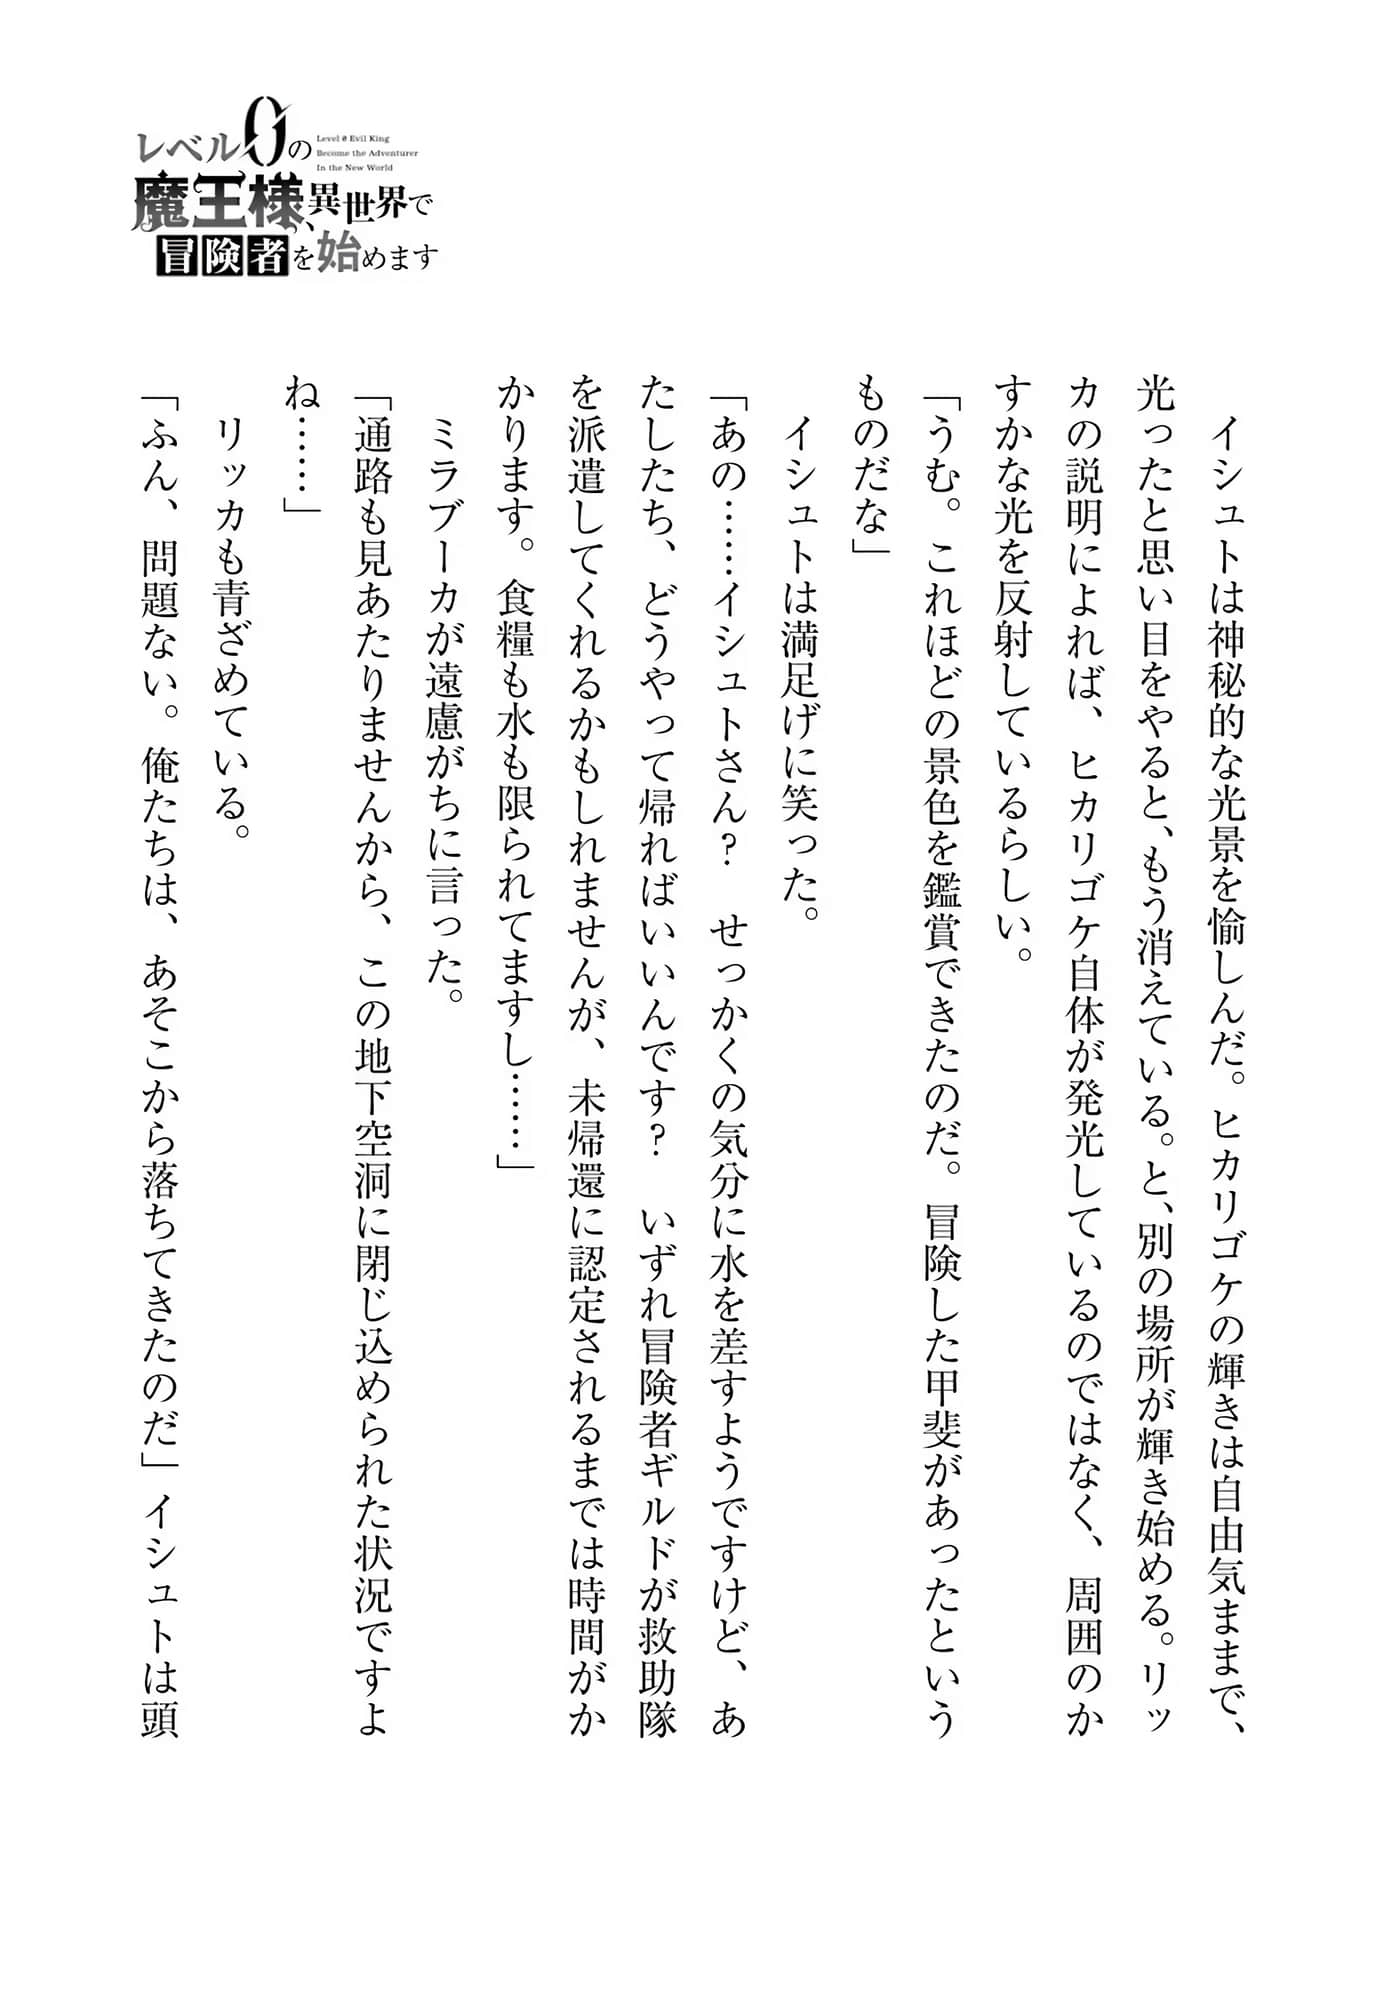 レベル0の
Level 0 Evil King
Become the Adventurer
In the New World
魔王様、異世界で
冒険者を始めます
イシュトは神秘的な光景を愉しんだ。ヒカリゴケの輝きは自由気ままで、
光ったと思い目をやると、もう消えている。と、別の場所が輝き始める。リッ
カの説明によれば、ヒカリゴケ自体が発光しているのではなく、周囲のか
すかな光を反射しているらしい。
「うむ。これほどの景色を鑑賞できたのだ。冒険した甲斐があったという
ものだな」
イシュトは満足げに笑った。
「あの……イシュトさん？　せっかくの気分に水を差すようですけど、あ
たしたち、どうやって帰ればいいんです？　いずれ冒険者ギルドが救助隊
を派遣してくれるかもしれませんが、未帰還に認定されるまでは時間がか
かります。食糧も水も限られてますし……」
ミラブーカが遠慮がちに言った。
「通路も見あたりませんから、この地下空洞に閉じ込められた状況ですよ
ね……」
リッカも青ざめている。
「ふん、問題ない。俺たちは、あそこから落ちてきたのだ」イシュトは頭